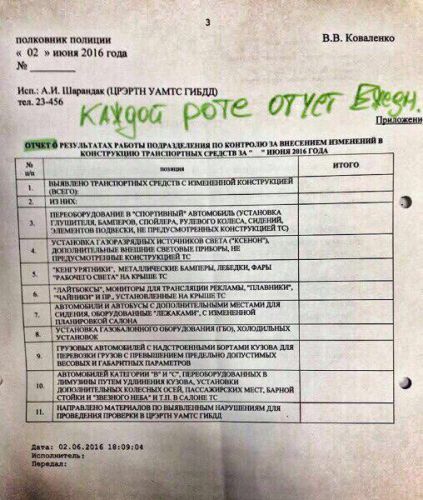 3
полковник полиции
В.В. Коваленко
« 02 » июня 2016 года
№
Исп.: А.И. Шарандак (ЦРЭРТН УАМТС ГИБДД)
тел. 23-456
КАЖДОЙ РОТЕ ОТЧЕТ Ежедн.
Приложени
ОТЧЕТ О РЕЗУЛЬТАТАХ РАБОТЫ ПОДРАЗДЕЛЕНИЯ ПО КОНТРОЛЮ ЗА ВНЕСЕНИЕМ ИЗМЕНЕНИЙ В
КОНСТРУКЦИЮ ТРАНСПОРТНЫХ СРЕДСТВ ЗА " " ИЮНЯ 2016 ГОДА
№ п/п
позиция
ИТОГО
1. ВЫЯВЛЕНО ТРАНСПОРТНЫХ СРЕДСТВ С ИЗМЕНЕННОЙ КОНСТРУКЦИЕЙ
(ВСЕГО):
2. ИЗ НИХ:
3. ПЕРЕОБОРУДОВАНИЕ В "СПОРТИВНЫЙ" АВТОМОБИЛЬ (УСТАНОВКА
ГЛУШИТЕЛЯ, БАМПЕРОВ, СПОЙЛЕРА, РУЛЕВОГО КОЛЕСА, СИДЕНИЙ,
ЭЛЕМЕНТОВ ПОДВЕСКИ, НЕ ПРЕДУСМОТРЕННЫХ КОНСТРУКЦИЕЙ ТС)
4. УСТАНОВКА ГАЗОРАЗРЯДНЫХ ИСТОЧНИКОВ СВЕТА ("КСЕНОН"),
ДОПОЛНИТЕЛЬНЫЕ ВНЕШНИЕ СВЕТОВЫЕ ПРИБОРЫ, НЕ
ПРЕДУСМОТРЕННЫЕ КОНСТРУКЦИЕЙ ТС
5. "КЕНГУРЯТНИКИ", МЕТАЛЛИЧЕСКИЕ БАМПЕРЫ, ЛЕБЕДКИ, ФАРЫ
"РАБОЧЕГО СВЕТА" НА КРЫШЕ ТС
6. "ЛАЙТБОКСЫ", МОНИТОРЫ ДЛЯ ТРАНСЛЯЦИИ РЕКЛАМЫ, "ПЛАВНИКИ",
"ЧАЙНИКИ" И ПР., УСТАНОВЛЕННЫЕ НА КРЫШЕ ТС
7. АВТОМОБИЛИ И АВТОБУСЫ С ДОПОЛНИТЕЛЬНЫМИ МЕСТАМИ ДЛЯ
СИДЕНИЯ, ОБОРУДОВАННЫЕ "ЛЕЖАКАМИ", С ИЗМЕНЕННОЙ
ПЛАНИРОВКОЙ САЛОНА
8. УСТАНОВКА ГАЗОБАЛОННОГО ОБОРУДОВАНИЯ (ГБО), ХОЛОДИЛЬНЫХ
УСТАНОВОК
9. ГРУЗОВЫХ АВТОМОБИЛЕЙ С НАДСТРОЕННЫМИ БОРТАМИ КУЗОВА ДЛЯ
ПЕРЕВОЗКИ ГРУЗОВ С ПРЕВЫШЕНИЕМ ПРЕДЕЛЬНО ДОПУСТИМЫХ
ВЕСОВЫХ И ГАБАРИТНЫХ ПАРАМЕТРОВ
10. АВТОМОБИЛЕЙ КАТЕГОРИИ "В" И "С", ПЕРЕОБОРУДОВАННЫХ В
ЛИМУЗИНЫ ПУТЕМ УДЛИНЕНИЯ КУЗОВА, УСТАНОВКИ
ДОПОЛНИТЕЛЬНЫХ КОЛЕСНЫХ ОСЕЙ, ПАССАЖИРСКИХ МЕСТ, БАРНОЙ
СТОЙКИ И "ЗВЕЗДНОГО НЕБА" И Т.П. В САЛОНЕ ТС
11. НАПРАВЛЕНО МАТЕРИАЛОВ ПО ВЫЯВЛЕННЫМ НАРУШЕНИЯМ ДЛЯ
ПРОВЕДЕНИЯ ПРОВЕРКИ В ЦРЭРТН УАМТС ГИБДД
Дата: 02.06.2016 18:09:04
Исполнитель:
Передал: